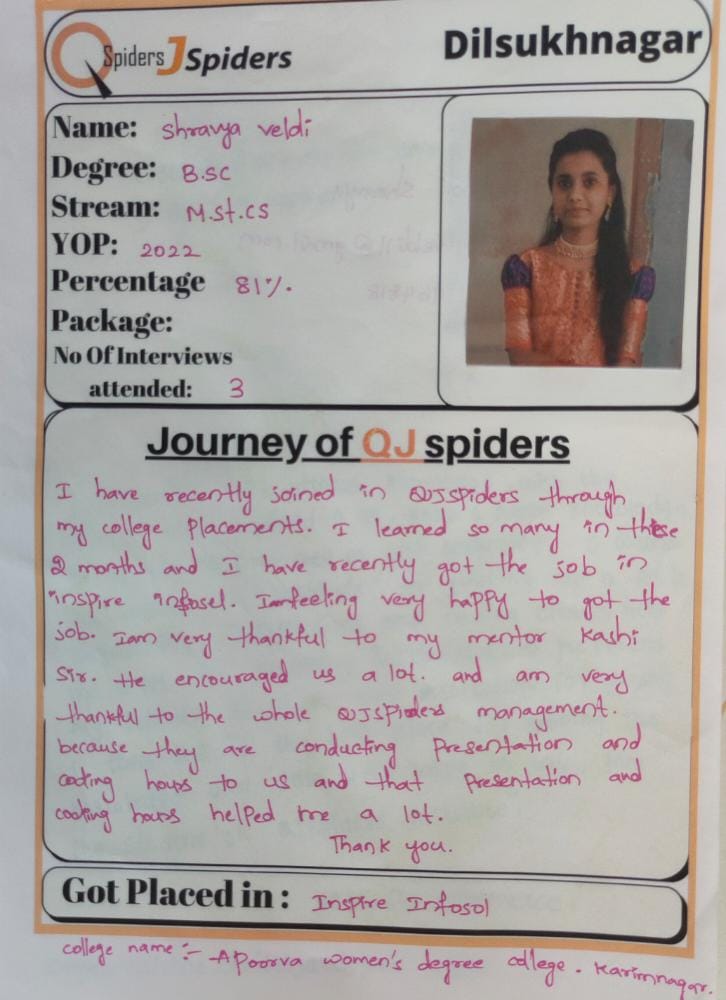 QSpiders JSpiders
Dilsukhnagar
Name: Shravya Veldi
Degree: B.SC
Stream: M.St.CS
YOP: 2022
Percentage 81%.
Package:
No Of Interviews
attended: 3
Journey of QJ spiders
I have recently joined in QJSpiders through
my college Placements. I learned so many in these
2 months and I have recently got the job in
inspire infosel. Iamfeeling very happy to got the
job. Iam very thankful to my mentor Kashi
Sir. He encouraged us a lot. and am very
thankful to the whole QJSpiders management.
because they are conducting Presentation and
coding hours to us and that Presentation and
coding hours helped me a lot.
Thank you.
Got Placed in : Inspire Infosol
college name :- Apoorva women's degree college . Karimnagar.